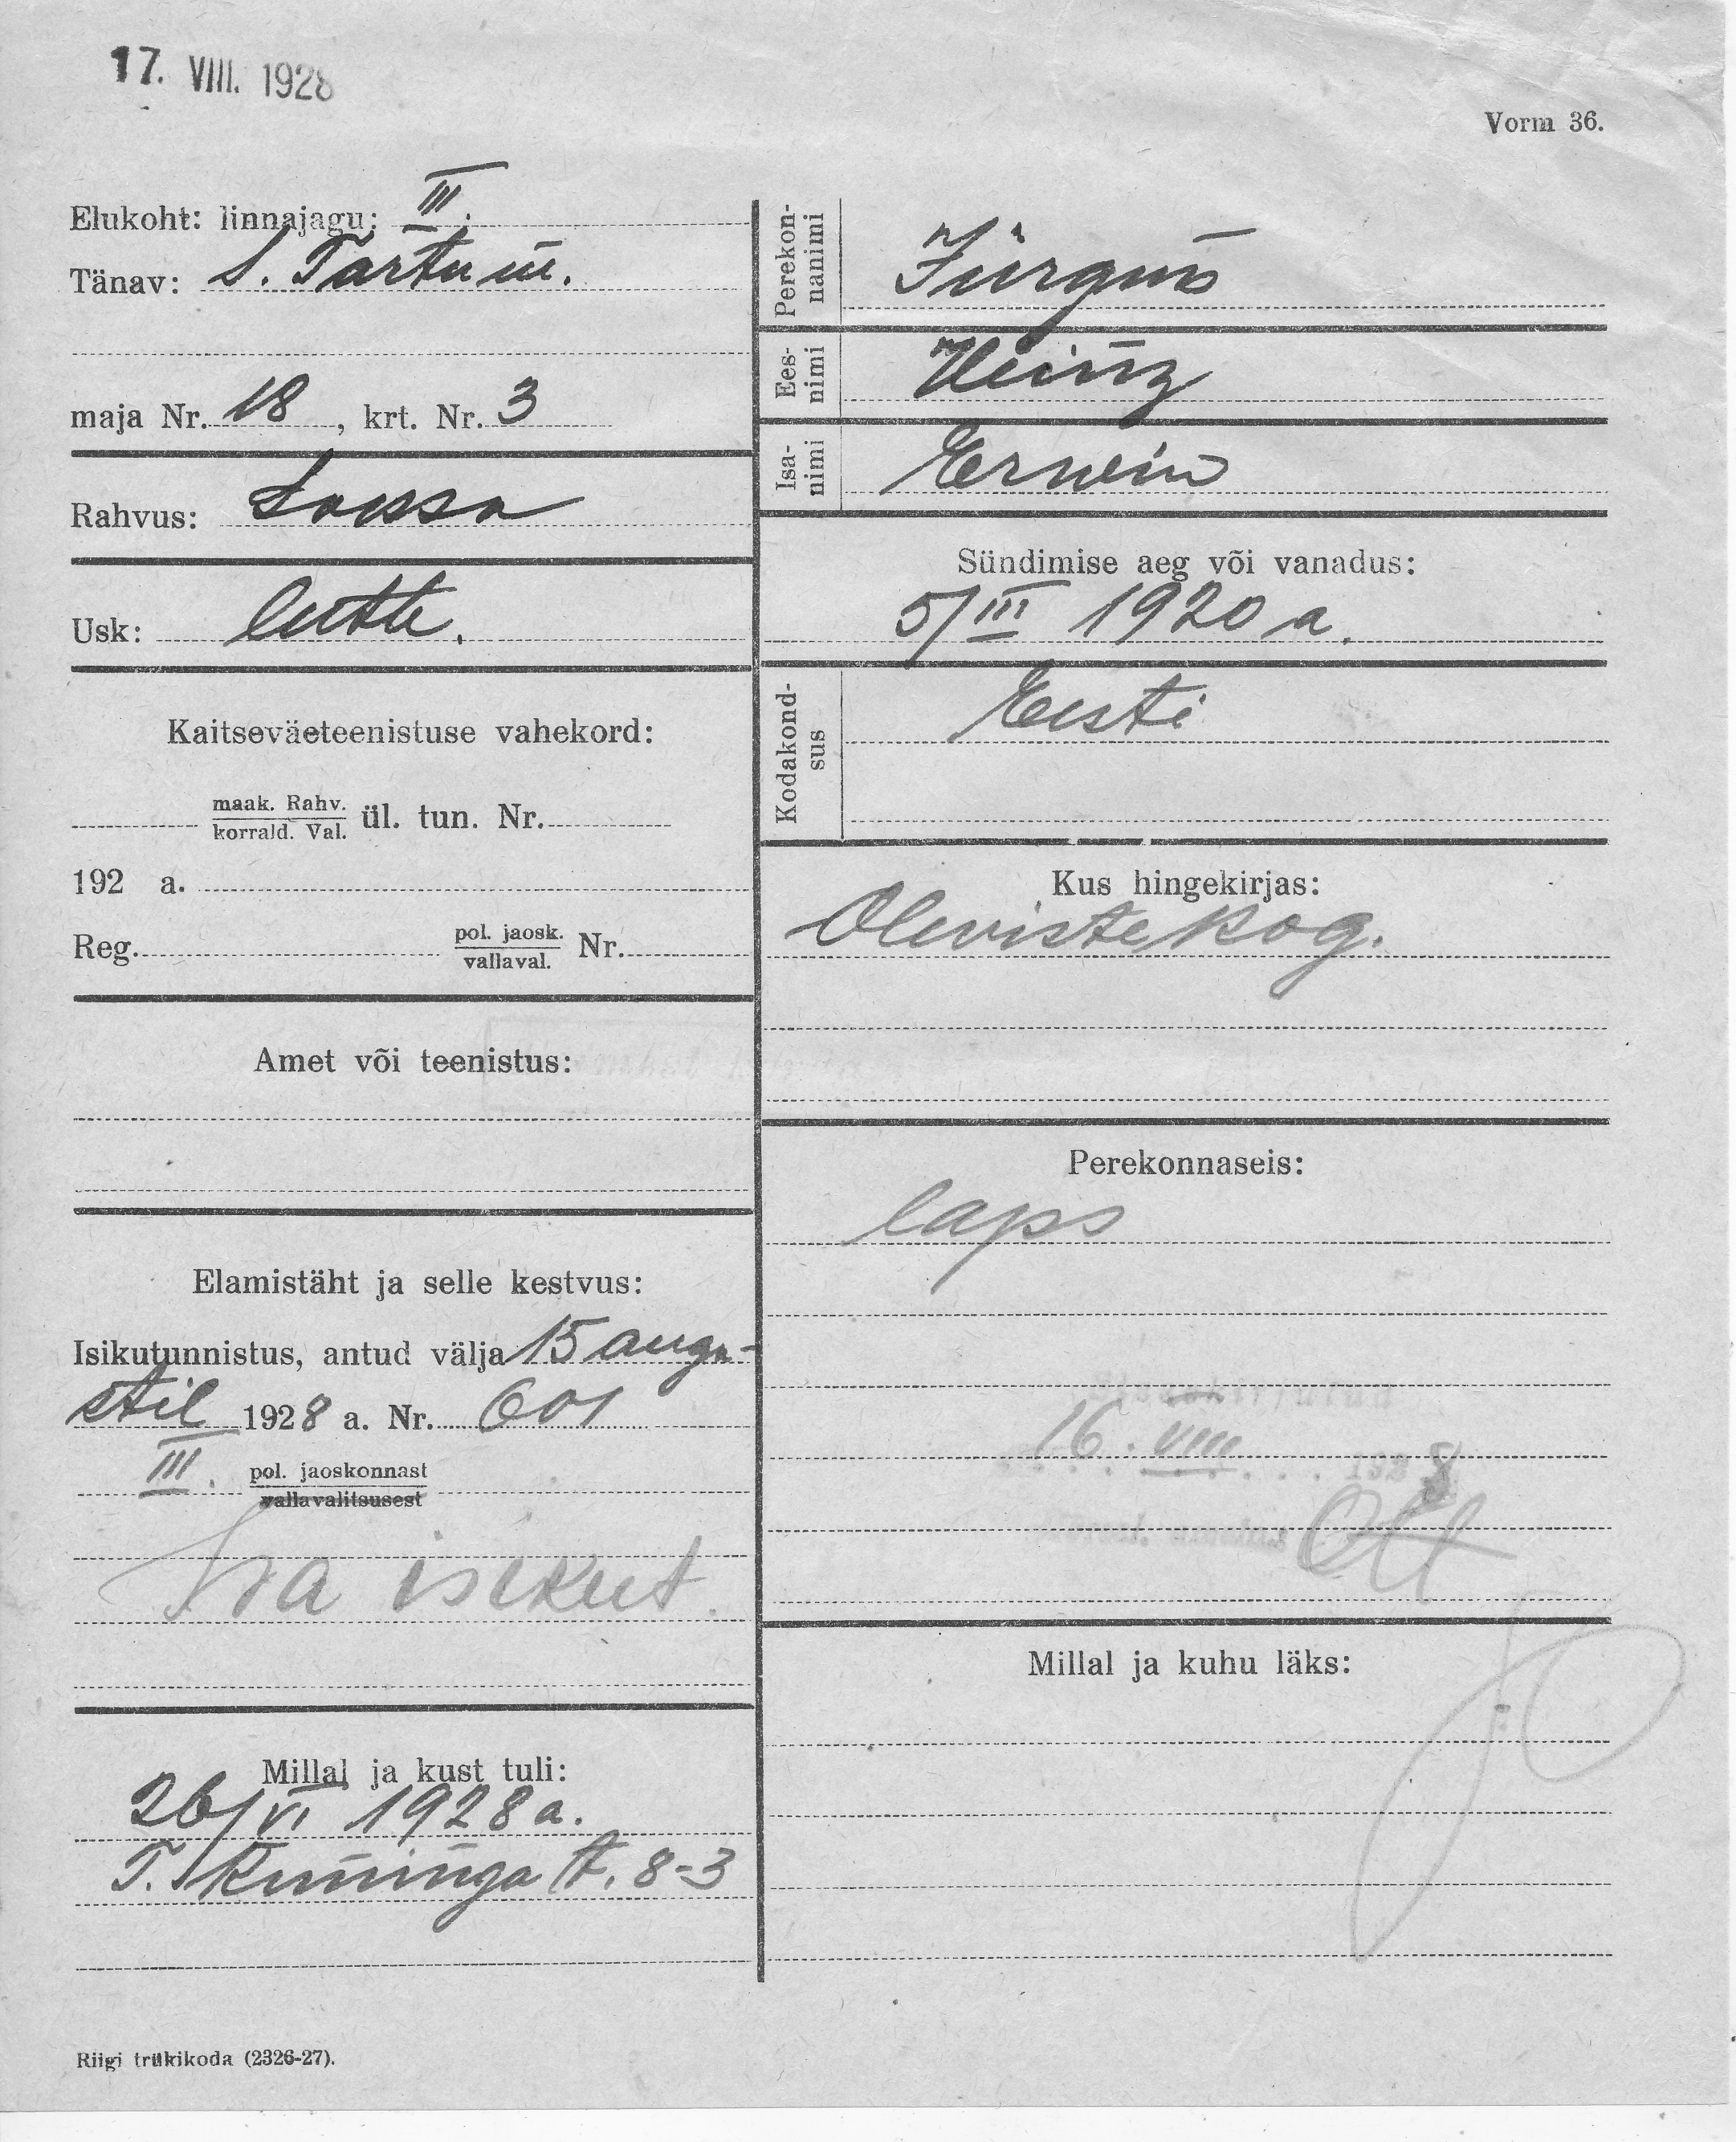 17. VIII. 1928
Vorm 36.
Elukoht: linnajagu: III.
Tänav: S. Tartu m.
maja Nr. 18, krt. Nr. 3
Rahvus: Saksa
Usk: luth.
Kaitseväeteenistuse vahekord:
maak. Rahv.
korrald. Val. ül. tun. Nr.
192 a.
Reg. pol. jaosk.
vallaval. Nr.
Amet või teenistus:
Elamistäht ja selle kestvus:
Isikutunnistus, antud välja 15 augu-
stil 1928 a. Nr. 601
III. pol. jaoskonnast
vallavalitsusest
Isa isikut.
Millal ja kust tuli:
26/VI 1928 a.
T. Kuninga t. 8-3
Perekon-
nanimi Jürgens
Ees-
nimi Heinz
Isa-
nimi Erwin
Sündimise aeg või vanadus:
5/III 1920 a.
Kodakond-
sus Eesti
Kus hingekirjas:
Oleviste kog.
Perekonnaseis:
laps
16. VIII 1928
Millal ja kuhu läks:
Riigi trükikoda (2326-27).